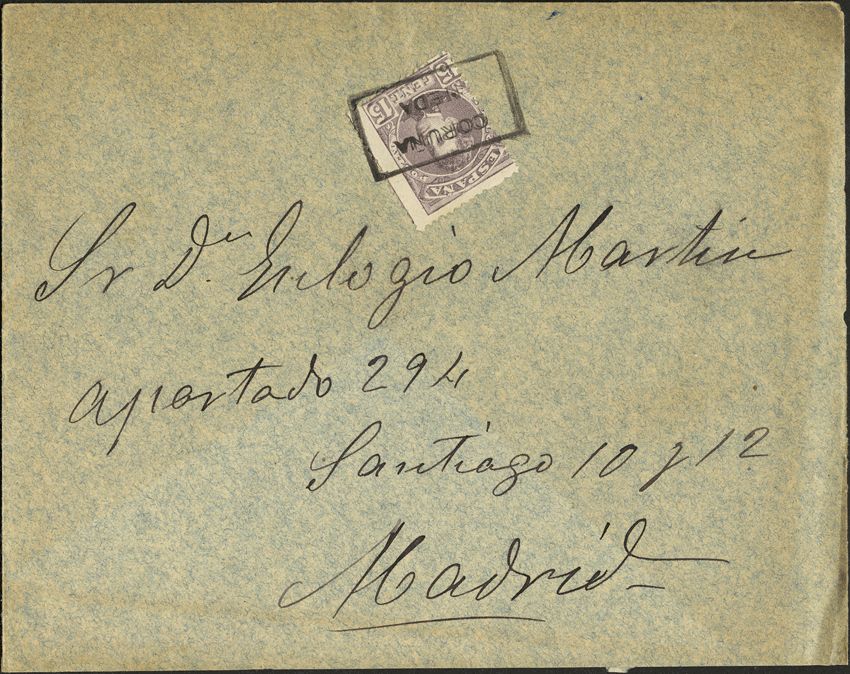 15 CENTS 15
ESPAÑA
CORUÑA
Sr Dn. Eulogio Martin
apartado 294
Santiago 10 y 12
Madrid